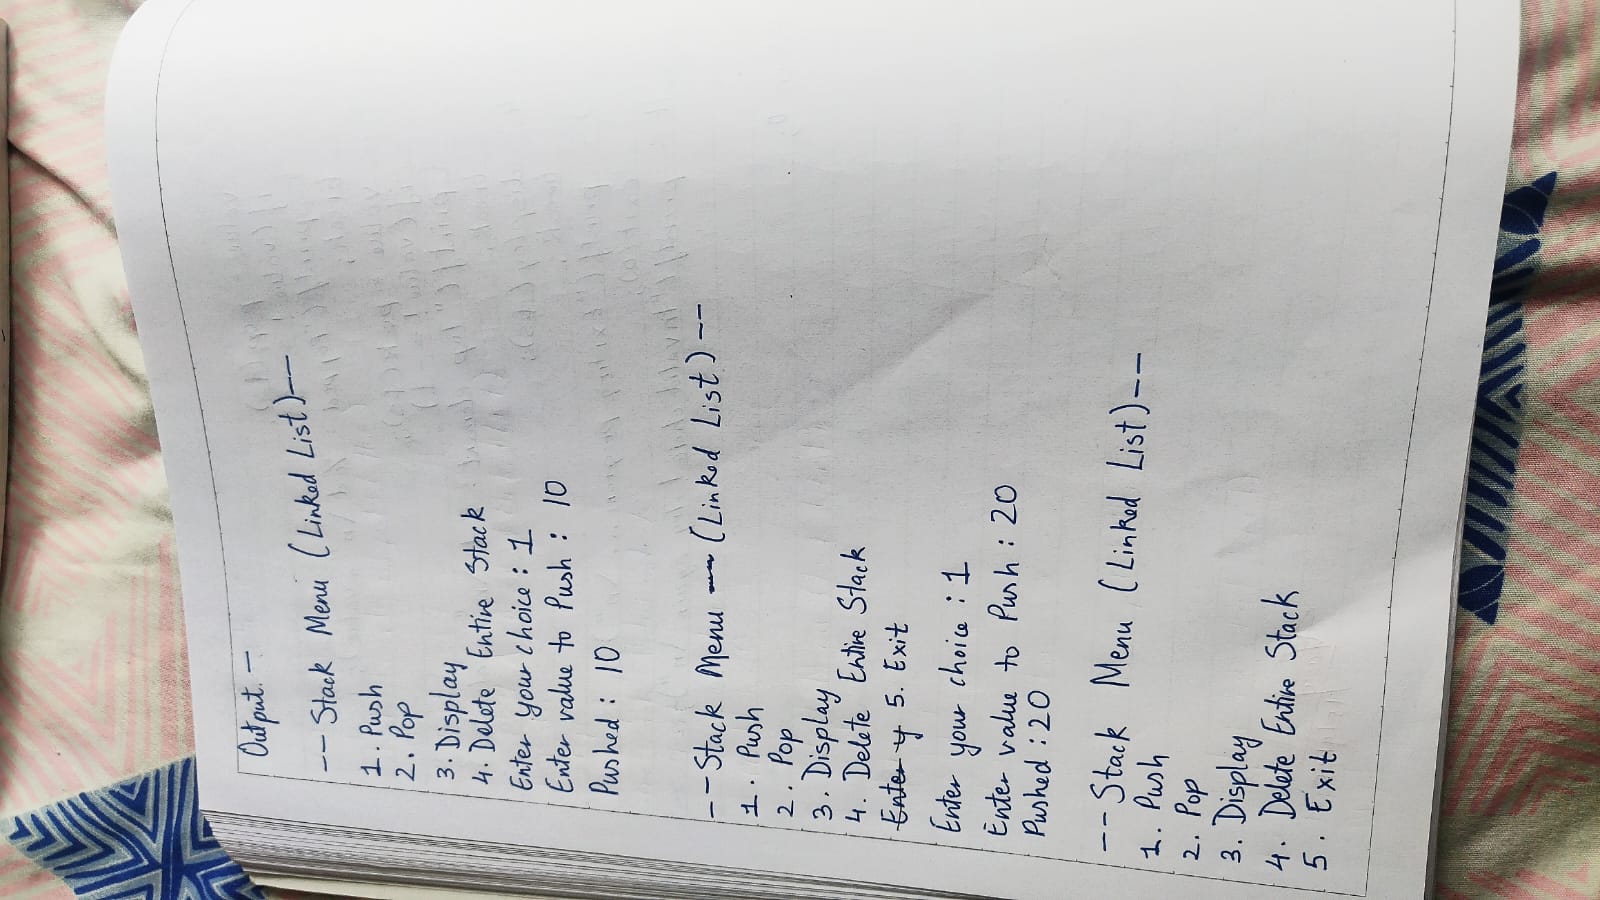 Output. -
-- Stack Menu (Linked List)--
1. Push
2. Pop
3. Display
4. Delete Entire Stack
Enter your choice : 1
Enter value to Push : 10
Pushed : 10
-- Stack Menu (Linked List) --
1. Push
2. Pop
3. Display
4. Delete Entire Stack
Enter y 5. Exit
Enter your choice : 1
Enter value to Push : 20
Pushed : 20
-- Stack Menu (Linked List)--
1. Push
2. Pop
3. Display
4. Delete Entire Stack
5. Exit